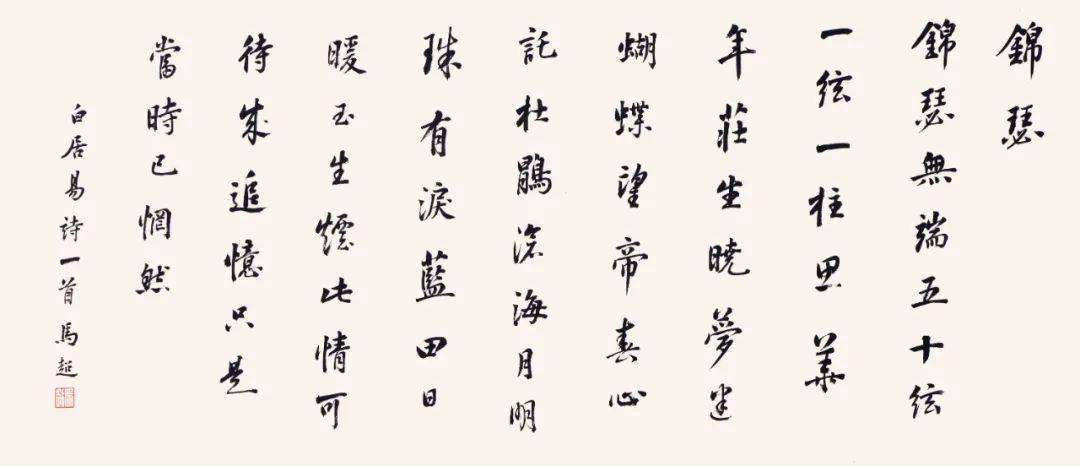 錦瑟
錦瑟無端五十絃
一絃一柱思華
年莊生曉夢迷
蝴蝶望帝春心
託杜鵑滄海月明
珠有淚藍田日
暖玉生煙此情可
待成追憶只是
當時已惘然
白居易詩一首馬超